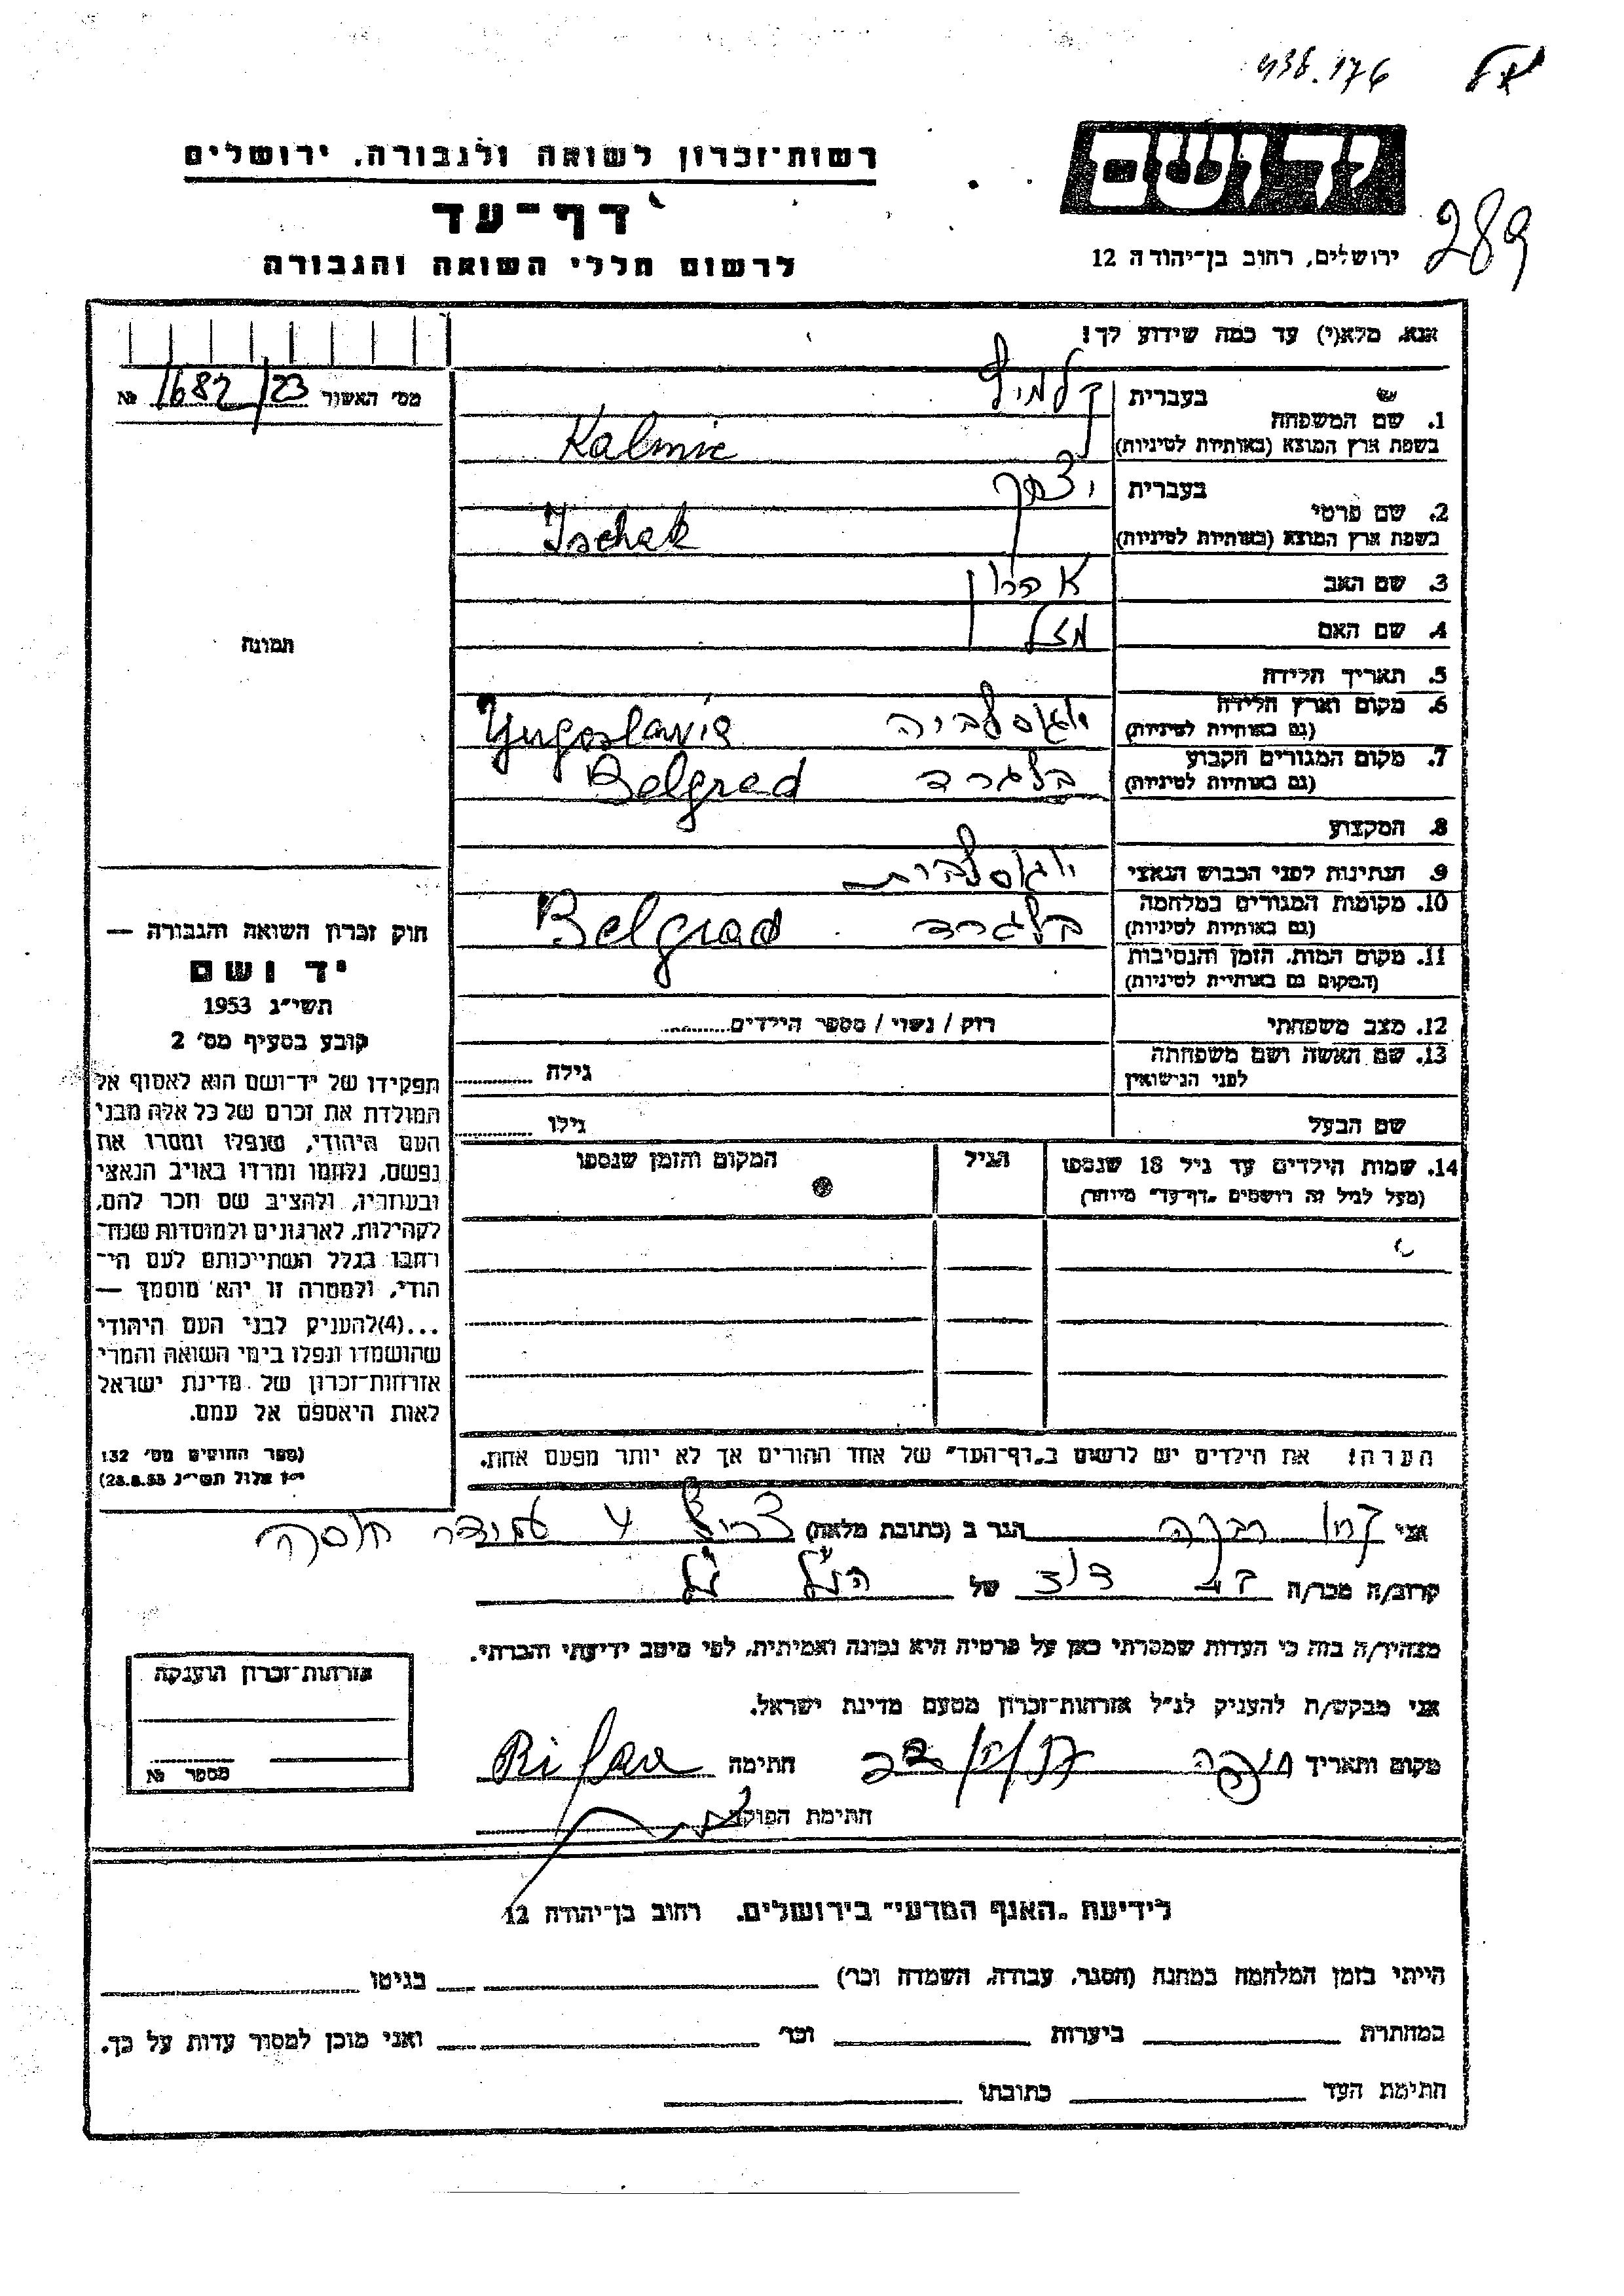 438.176
289
יד ושם
ירושלים, רחוב בן־יהודה 12
רשות־זכרון לשואה ולגבורה, ירושלים
דף־עד
לרשום חללי השואה והגבורה
אנא, מלא(י) עד כמה שידוע לך!
מס׳ האשור 1682/23 №
1. שם המשפחה
בעברית
בשפת ארץ המוצא (באותיות לטיניות) Kalmic
2. שם פרטי
בעברית יצחק
בשפת ארץ המוצא (באותיות לטיניות) Ischak
3. שם האב אהרון
4. שם האם מזל
5. תאריך הלידה
6. מקום וארץ הלידה
(גם באותיות לטיניות) יוגוסלביה Yugoslavia
7. מקום המגורים הקבוע
(גם באותיות לטיניות) בלגרד Belgrad
8. המקצוע
9. הנתינות לפני הכבוש הנאצי יוגוסלבית
10. מקומות המגורים במלחמה
(גם באותיות לטיניות) בלגרד Belgrad
11. מקום המות, הזמן והנסיבות
(המקום גם באותיות לטיניות)
12. מצב משפחתי רווק / נשוי / מספר הילדים
13. שם האשה ושם משפחתה
לפני הנישואין גילה
שם הבעל גילו
14. שמות הילדים עד גיל 18 שנספו הגיל המקום והזמן שנספו
(מעל לגיל זה רושמים „דף־עד״ מיוחד)
הערה! את הילדים יש לרשום ב„דף־העד״ של אחד ההורים אך לא יותר מפעם אחת.
תמונה
חוק זכרון השואה והגבורה —
יד ושם
תשי״ג 1953
קובע בסעיף מס׳ 2
תפקידו של יד־ושם הוא לאסוף אל
המולדת את זכרם של כל אלה מבני
העם היהודי, שנפלו ומסרו את
נפשם, נלחמו ומרדו באויב הנאצי
ובעוזריו, ולהציב שם וזכר להם,
לקהילות, לארגונים ולמוסדות שנח־
רבו בגלל השתייכותם לעם הי־
הודי, ולמטרה זו יהא מוסמך —
...(4)להעניק לבני העם היהודי
שהושמדו ונפלו בימי השואה והמרי
אזרחות־זכרון של מדינת ישראל
לאות היאספם אל עמם.
(ספר החוקים מס׳ 132
י״ז אלול תשי״ג 28.8.53)
אני רבקה הגר ב (כתובת מלאה) 4
קרוב/ה מכר/ה של
מצהיר/ה בזה כי העדות שמסרתי כאן על פרטיה היא נכונה ואמיתית, לפי מיטב ידיעתי והכרתי.
אני מבקש/ת להעניק לנ״ל אזרחות־זכרון מטעם מדינת ישראל.
מקום ותאריך חיפה חתימה
חתימת הפוקד
אזרחות־זכרון הוענקה
מספר №
לידיעת „האגף המדעי״ בירושלים, רחוב בן־יהודה 12
הייתי בזמן המלחמה במחנה (הסגר, עבודה, השמדה וכו׳) בגיטו
במחתרת ביערות וכו׳ ואני מוכן למסור עדות על כך.
חתימת העד כתובתו